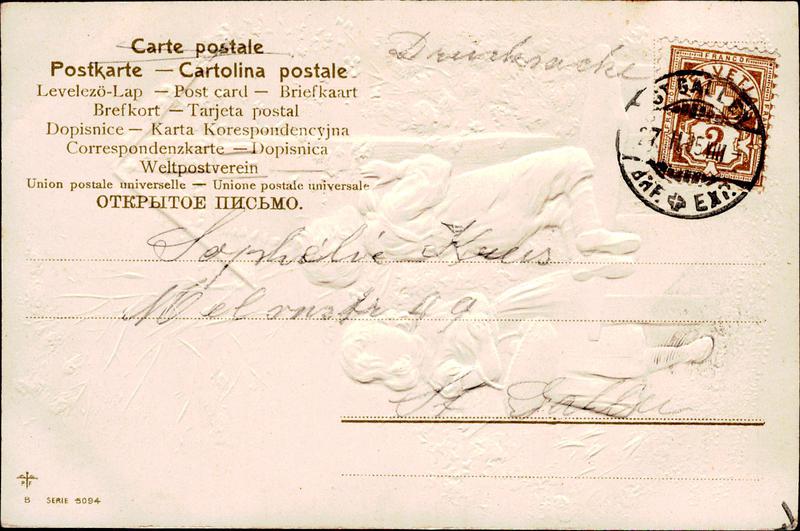 Carte postale
Postkarte — Cartolina postale
Levelezö-Lap — Post card — Briefkaart
Brefkort — Tarjeta postal
Dopisnice — Karta Korespondencyjna
Correspondenzkarte — Dopisnica
Weltpostverein
Union postale universelle — Unione postale universale
ОТКРЫТОЕ ПИСЬМО.
Drucksache
FRANCO
HELVETIA
2
ST. GALLEN
BRF. EXP.
St Gallen
P F
B SERIE 5094